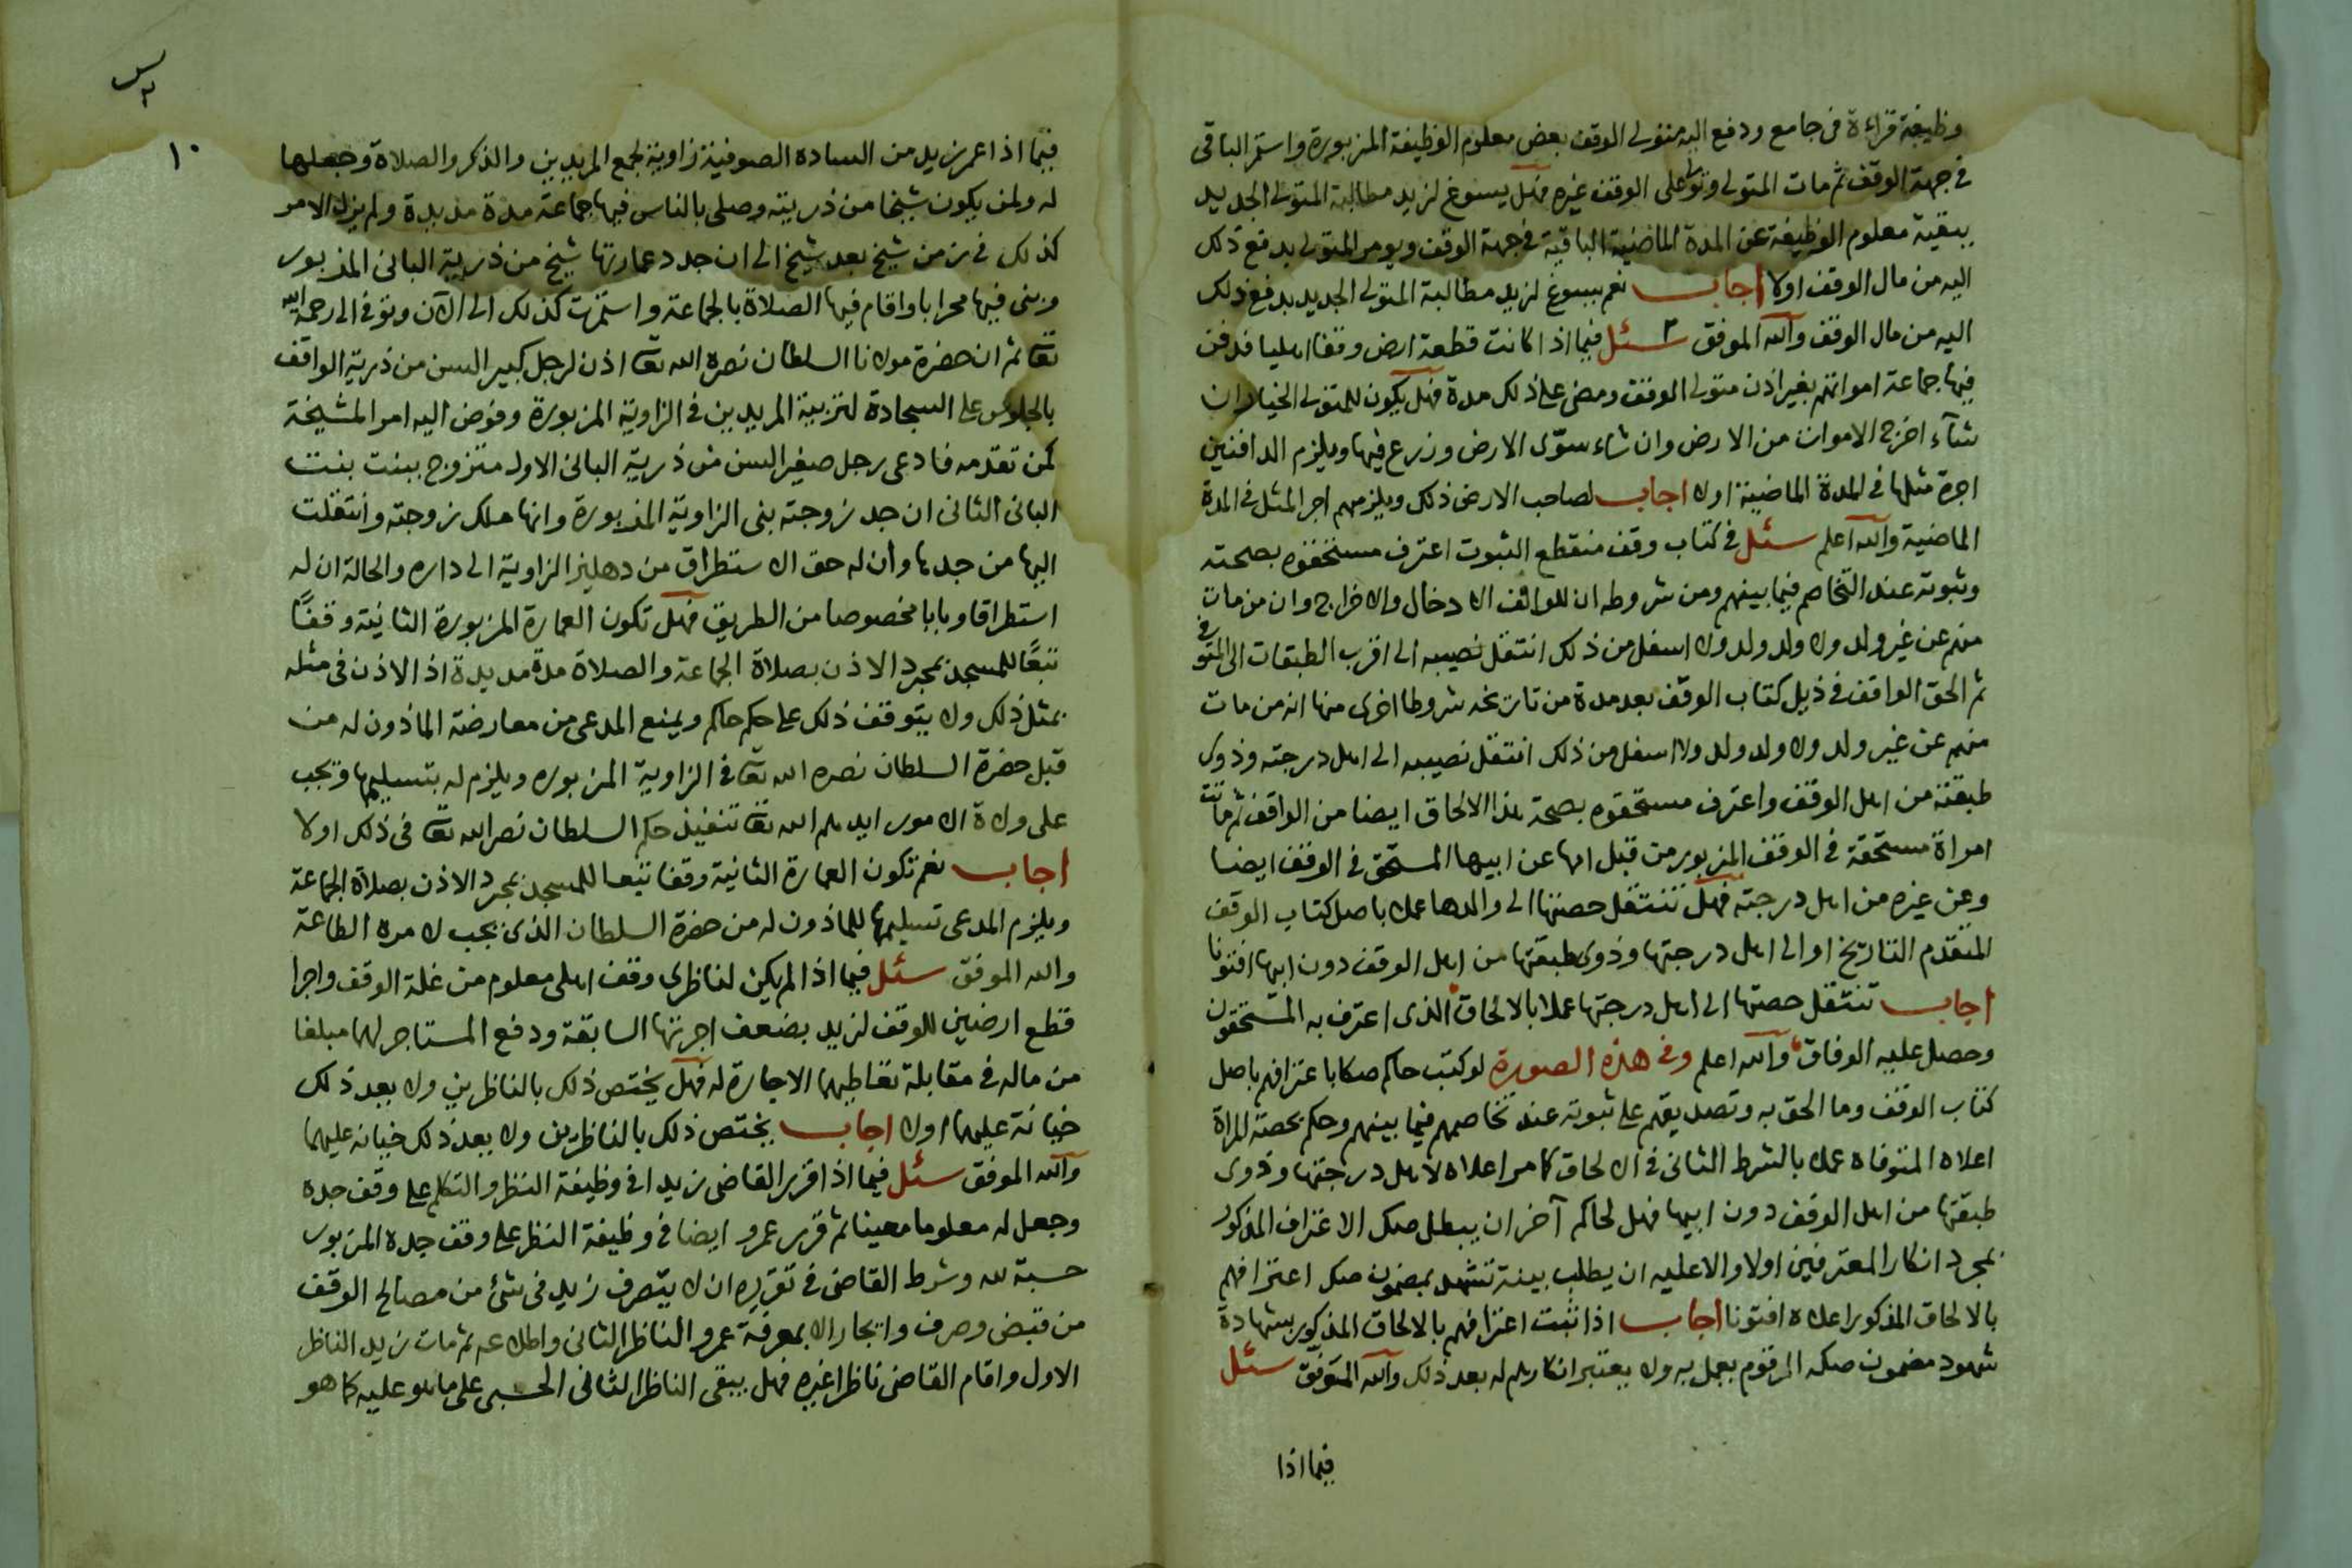 وظيفة قراءة في جامع ودفع اليه متولى الوقف بعض معلوم الوظيفة المزبورة واستمر الباقى
في جهة الوقف ثم مات المتولى وتولى على الوقف غيره فهل يسوغ لزيد مطالبة المتولى الجديد
ببقية معلوم الوظيفة عن المدة الماضية الباقية في جهة الوقف ويومر المتولى بدفع ذلك
اليه من مال الوقف اولا اجاب نعم يسوغ لزيد مطالبة المتولى الجديد بدفع ذلك
اليه من مال الوقف والله الموفق سئل فيما اذا كانت قطعة ارض وقفا اهليا فدفن
فيها جماعة امواتهم بغير اذن متولى الوقف ومضى على ذلك مدة فهل يكون للمتولى الخيار ان
شآء اخرج الاموات من الارض وان شاء سوّى الارض وزرع فيها ويلزم الدافنين
اجرة مثلها في المدة الماضية اولا اجاب لصاحب الارض ذلك ويلزمهم اجر المثل في المدة
الماضية والله اعلم سئل في كتاب وقف منقطع الثبوت اعترف مستحقوه بصحته
وثبوته عند التخاصم فيما بينهم ومن شروطه ان للواقف الادخال والاخراج وان من مات
منهم عن غير ولد ولا ولد ولد ولا اسفل من ذلك انتقل نصيبه الى اقرب الطبقات الى المتوفى
ثم الحق الواقف في ذيل كتاب الوقف بعد مدة من تاريخه شروطا اخرى منها انه من مات
منهم عن غير ولد ولا ولد ولد ولا اسفل من ذلك انتقل نصيبه الى اهل درجته وذوى
طبقته من اهل الوقف واعترف مستحقوه بصحة هذا الالحاق ايضا من الواقف ثم ماتت
امراة مستحقة في الوقف المزبور من قبل امها عن ابيها المستحق في الوقف ايضا
وعن غيره من اهل درجته فهل تنتقل حصتها الى والدها عملا باصل كتاب الوقف
المتقدم التاريخ او الى اهل درجتها وذوى طبقتها من اهل الوقف دون ابيها افتونا
اجاب تنتقل حصتها الى اهل درجتها عملا بالالحاق الذى اعترف به المستحقون
وحصل عليه الوفاق والله اعلم وفى هذه الصورة لو كتب حاكم صكا باعترافهم باصل
كتاب الوقف وما الحق به وتصديقهم على ثبوته عند تخاصمهم فيما بينهم وحكم بحصة المراة
اعلاه المتوفاة عملا بالشرط الثانى في الالحاق كما مر اعلاه لاهل درجتها وذوى
طبقتها من اهل الوقف دون ابيها فهل لحاكم آخر ان يبطل صك الاعتراف المذكور
بمجرد انكار المعترفين اولا والاعليه ان يطلب بينة تشهد بمضمون صك اعترافهم
بالالحاق المذكور اعلاه افتونا اجاب اذا ثبت اعترافهم بالالحاق المذكور بشهادة
شهود مضمون صكه المرقوم يعمل به ولا يعتبر انكارهم له بعد ذلك والله الموفق سئل
فيما اذا
س
٢
١٠
فيما اذا عمر زيد من الساده الصوفية زاوية لجمع المريدين والذكر والصلاة وجعلها
له ولمن يكون شيخا من ذريته وصلى بالناس فيها جماعة مدة مديدة ولم يزل الامر
كذلك في زمن شيخ بعد شيخ الى ان جدد عمارتها شيخ من ذرية البانى المزبور
وبنى فيها محرابا واقام فيها الصلاة بالجماعة واستمرت كذلك الى الآن وتوفى الى رحمة الله
تعا ثم ان حضرة مولانا السلطان نصره الله تعا اذن لرجل كبير السن من ذرية الواقف
بالجلوس على السجادة لتربية المريدين في الزاوية المزبورة وفوض اليه امر المشيخة
كمن تقدمه فادعى رجل صغير السن من ذرية البانى الاول متزوج ببنت بنت
البانى الثانى ان جد زوجته بنى الزاوية المزبورة وانها ملك زوجته وانتقلت
اليها من جدها وان له حق الاستطراق من دهليز الزاوية الى داره والحالة ان له
استطراقا وبابا مخصوصا من الطريق فهل تكون العمارة المزبورة الثانية وقفًا
تبعًا للمسجد بمجرد الاذن بصلاة الجماعة والصلاة مدة مديدة اذ الاذن في مثله
بمثل ذلك ولا يتوقف ذلك على حكم حاكم ويمنع المدعى من معارضة الماذون له من
قبل حضرة السلطان نصره الله تعا في الزاوية المزبوره ويلزم له بتسليمها ويجب
على ولاة الامور ايدهم الله تعا تنفيذ حكم السلطان نصر الله تعا في ذلك اولا
اجاب نعم تكون العمارة الثانية وقفا تبعا للمسجد بمجرد الاذن بصلاة الجماعة
ويلزم المدعى تسليمها للماذون له من حضرة السلطان الذى يجب لامره الطاعة
والله الموفق سئل فيما اذا لم يكن لناظرى وقف اهلى معلوم من غلة الوقف واجرا
قطع ارضين للوقف لزيد بضعف اجرتها السابقة ودفع المستاجر لهما مبلغا
من ماله في مقابلة تعاطيهما الاجارة له فهل يختص ذلك بالناظرين ولا يعد ذلك
خيانة عليهما اولا اجاب يختص ذلك بالناظرين ولا يعد ذلك خيانه عليهما
والله الموفق سئل فيما اذا قرر القاضى زيدا في وظيفة النظر والتكلم على وقف جده
وجعل له معلوما معينا ثم قرر عمرو ايضا في وظيفة النظر على وقف جده المزبور
حسبة لله وشرط القاضى في تقريره ان لا يتصرف زيد في شئ من مصالح الوقف
من قبض وصرف وايجار الا بمعرفة عمرو الناظر الثانى واطلاعه ثم مات زيد الناظر
الاول واقام القاضى ناظرا غيره فهل يبقى الناظر الثانى الحسبى على ما هو عليه كما هو